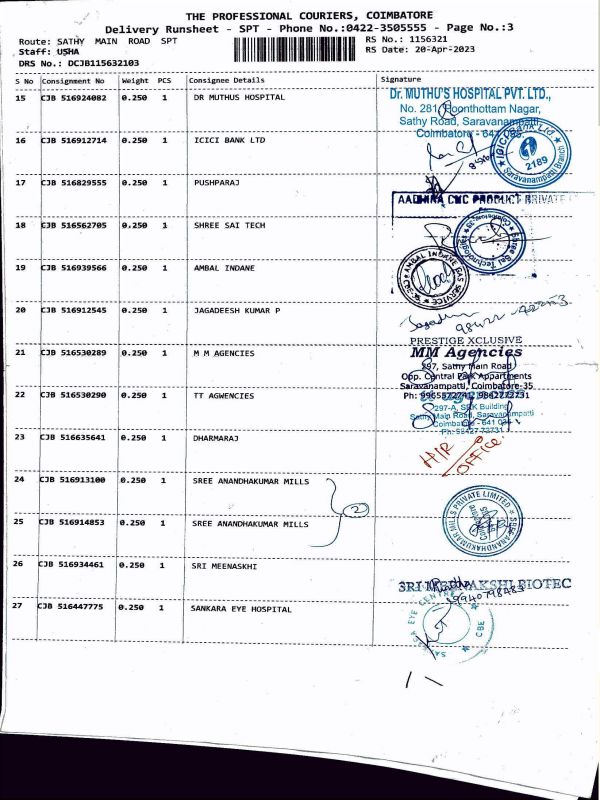 THE PROFESSIONAL COURIERS, COIMBATORE
Delivery Runsheet - SPT - Phone No.:0422-3505555 - Page No.:3
Route: SATHY MAIN ROAD SPT RS No.: 1156321
Staff: USHA RS Date: 20-Apr-2023
DRS No.: DCJB115632103
S No Consignment No Weight PCS Consignee Details Signature
15 CJB 516924082 0.250 1 DR MUTHUS HOSPITAL
Dr. MUTHU'S HOSPITAL PVT. LTD.,
No. 281, Poonthottam Nagar,
Sathy Road, Saravanampatti,
Coimbatore - 641
16 CJB 516912714 0.250 1 ICICI BANK LTD
ICICI Bank Ltd
2189
Saravanampatti Branch
17 CJB 516829555 0.250 1 PUSHPARAJ
AADHIRA CNC PRODUCT PRIVATE
18 CJB 516562705 0.250 1 SHREE SAI TECH
19 CJB 516939566 0.250 1 AMBAL INDANE
AMBAL INDANE GAS SERVICE
20 CJB 516912545 0.250 1 JAGADEESH KUMAR P
21 CJB 516530289 0.250 1 M M AGENCIES
PRESTIGE XCLUSIVE
MM Agencies
297, Sathy Main Road
Opp. Central Park Appartments
Saravanampatti, Coimbatore-35
Ph: 9965372741, 9842772731
22 CJB 516530290 0.250 1 TT AGWENCIES
297-A, SRK Building
Sathy Main Road, Saravanampatti
Coimbatore - 641
Ph: 98427 72731
23 CJB 516635641 0.250 1 DHARMARAJ
H/R
OFFICE
24 CJB 516913100 0.250 1 SREE ANANDHAKUMAR MILLS
2
SREE ANANDHAKUMAR MILLS PRIVATE LIMITED
25 CJB 516914853 0.250 1 SREE ANANDHAKUMAR MILLS
26 CJB 516934461 0.250 1 SRI MEENASKHI
SRI MEENAKSHI BIOTEC
9940798483
27 CJB 516447775 0.250 1 SANKARA EYE HOSPITAL
EYE CENTRE
CBE